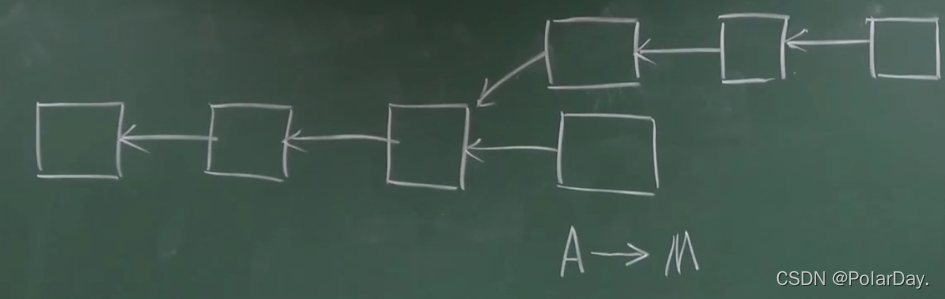 A → M
CSDN @PolarDay.